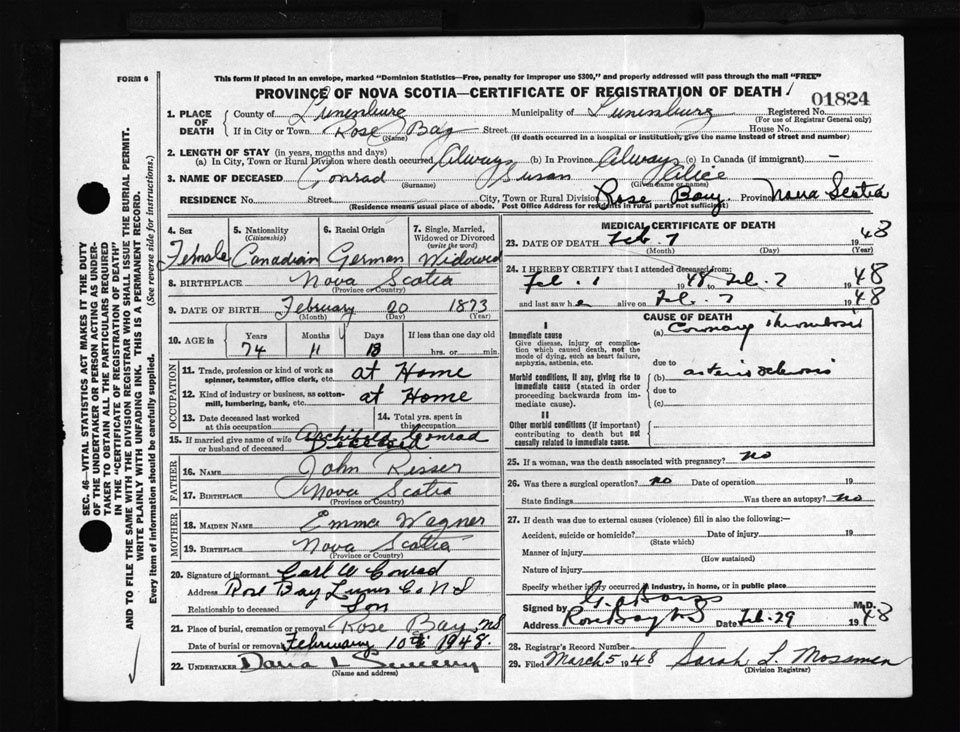 FORM 6
This form if placed in an envelope, marked "Dominion Statistics—Free, penalty for improper use $300," and properly addressed will pass through the mail "FREE"
PROVINCE OF NOVA SCOTIA—CERTIFICATE OF REGISTRATION OF DEATH
01824
1. PLACE OF DEATH
County of Lunenburg Municipality of Lunenburg Registered No.
(For use of Registrar General only)
If in City or Town Rose Bay Street House No.
(Name) (If death occurred in a hospital or institution, give the name instead of street and number)
2. LENGTH OF STAY (in years, months and days)
(a) In City, Town or Rural Division where death occurred Always (b) In Province Always (c) In Canada (if immigrant) –
3. NAME OF DECEASED Conrad Susan Alice
(Surname) (Given name or names)
RESIDENCE No. Street City, Town or Rural Division Rose Bay Province Nova Scotia
(Residence means usual place of abode. Post Office Address for residents in rural parts not sufficient)
4. Sex 5. Nationality (Citizenship) 6. Racial Origin 7. Single, Married, Widowed or Divorced (write the word)
Female Canadian German Widowed
8. BIRTHPLACE Nova Scotia
(Province or Country)
9. DATE OF BIRTH February 20 1873
(Month) (Day) (Year)
10. AGE in Years Months Days If less than one day old
74 11 18 hrs. or min.
OCCUPATION
11. Trade, profession or kind of work as spinner, teamster, office clerk, etc. at Home
12. Kind of industry or business, as cotton-mill, lumbering, bank, etc. at Home
13. Date deceased last worked at this occupation
14. Total yrs. spent in this occupation
15. If married give name of wife or husband of deceased Archibald Conrad
Deceased
FATHER
16. Name John Risser
17. Birthplace Nova Scotia
(Province or Country)
MOTHER
18. Maiden Name Emma Wagner
19. Birthplace Nova Scotia
(Province or Country)
20. Signature of informant Carl W Conrad
Address Rose Bay Lunen Co N S
Relationship to deceased Son
21. Place of burial, cremation or removal Rose Bay, NS
Date of burial or removal February 10th 1948.
22. UNDERTAKER
(Name and address)
MEDICAL CERTIFICATE OF DEATH
23. DATE OF DEATH Feb. 7 1948
(Month) (Day) (Year)
24. I HEREBY CERTIFY that I attended deceased from:
Feb. 1 1948 to Feb. 7 1948
and last saw her alive on Feb. 7 1948
CAUSE OF DEATH
I
Immediate cause
Give disease, injury or complication which caused death, not the mode of dying, such as heart failure, asphyxia, asthenia, etc.
(a) Coronary thrombosis
due to
Morbid conditions, if any, giving rise to immediate cause (stated in order proceeding backwards from immediate cause).
(b) arterio sclerosis
due to
(c)
II
Other morbid conditions (if important) contributing to death but not causally related to immediate cause.
25. If a woman, was the death associated with pregnancy? no
26. Was there a surgical operation? no Date of operation 19
State findings Was there an autopsy? no
27. If death was due to external causes (violence) fill in also the following:—
Accident, suicide or homicide? Date of injury 19
(State which)
Manner of injury
(How sustained)
Nature of injury
Specify whether injury occurred in industry, in home, or in public place
Signed by M.D.
Address Rose Bay N S Date Feb. 29 1948
28. Registrar's Record Number
29. Filed March 5 1948 Sarah L. Mossman
(Division Registrar)
SEC. 46—VITAL STATISTICS ACT MAKES IT THE DUTY
OF THE UNDERTAKER OR PERSON ACTING AS UNDER-
TAKER TO OBTAIN ALL THE PARTICULARS REQUIRED
IN THE "CERTIFICATE OF REGISTRATION OF DEATH"
AND TO FILE THE SAME WITH THE DIVISION REGISTRAR WHO SHALL ISSUE THE BURIAL PERMIT.
WRITE PLAINLY WITH UNFADING INK. THIS IS A PERMANENT RECORD.
Every item of information should be carefully supplied. (See reverse side for instructions.)